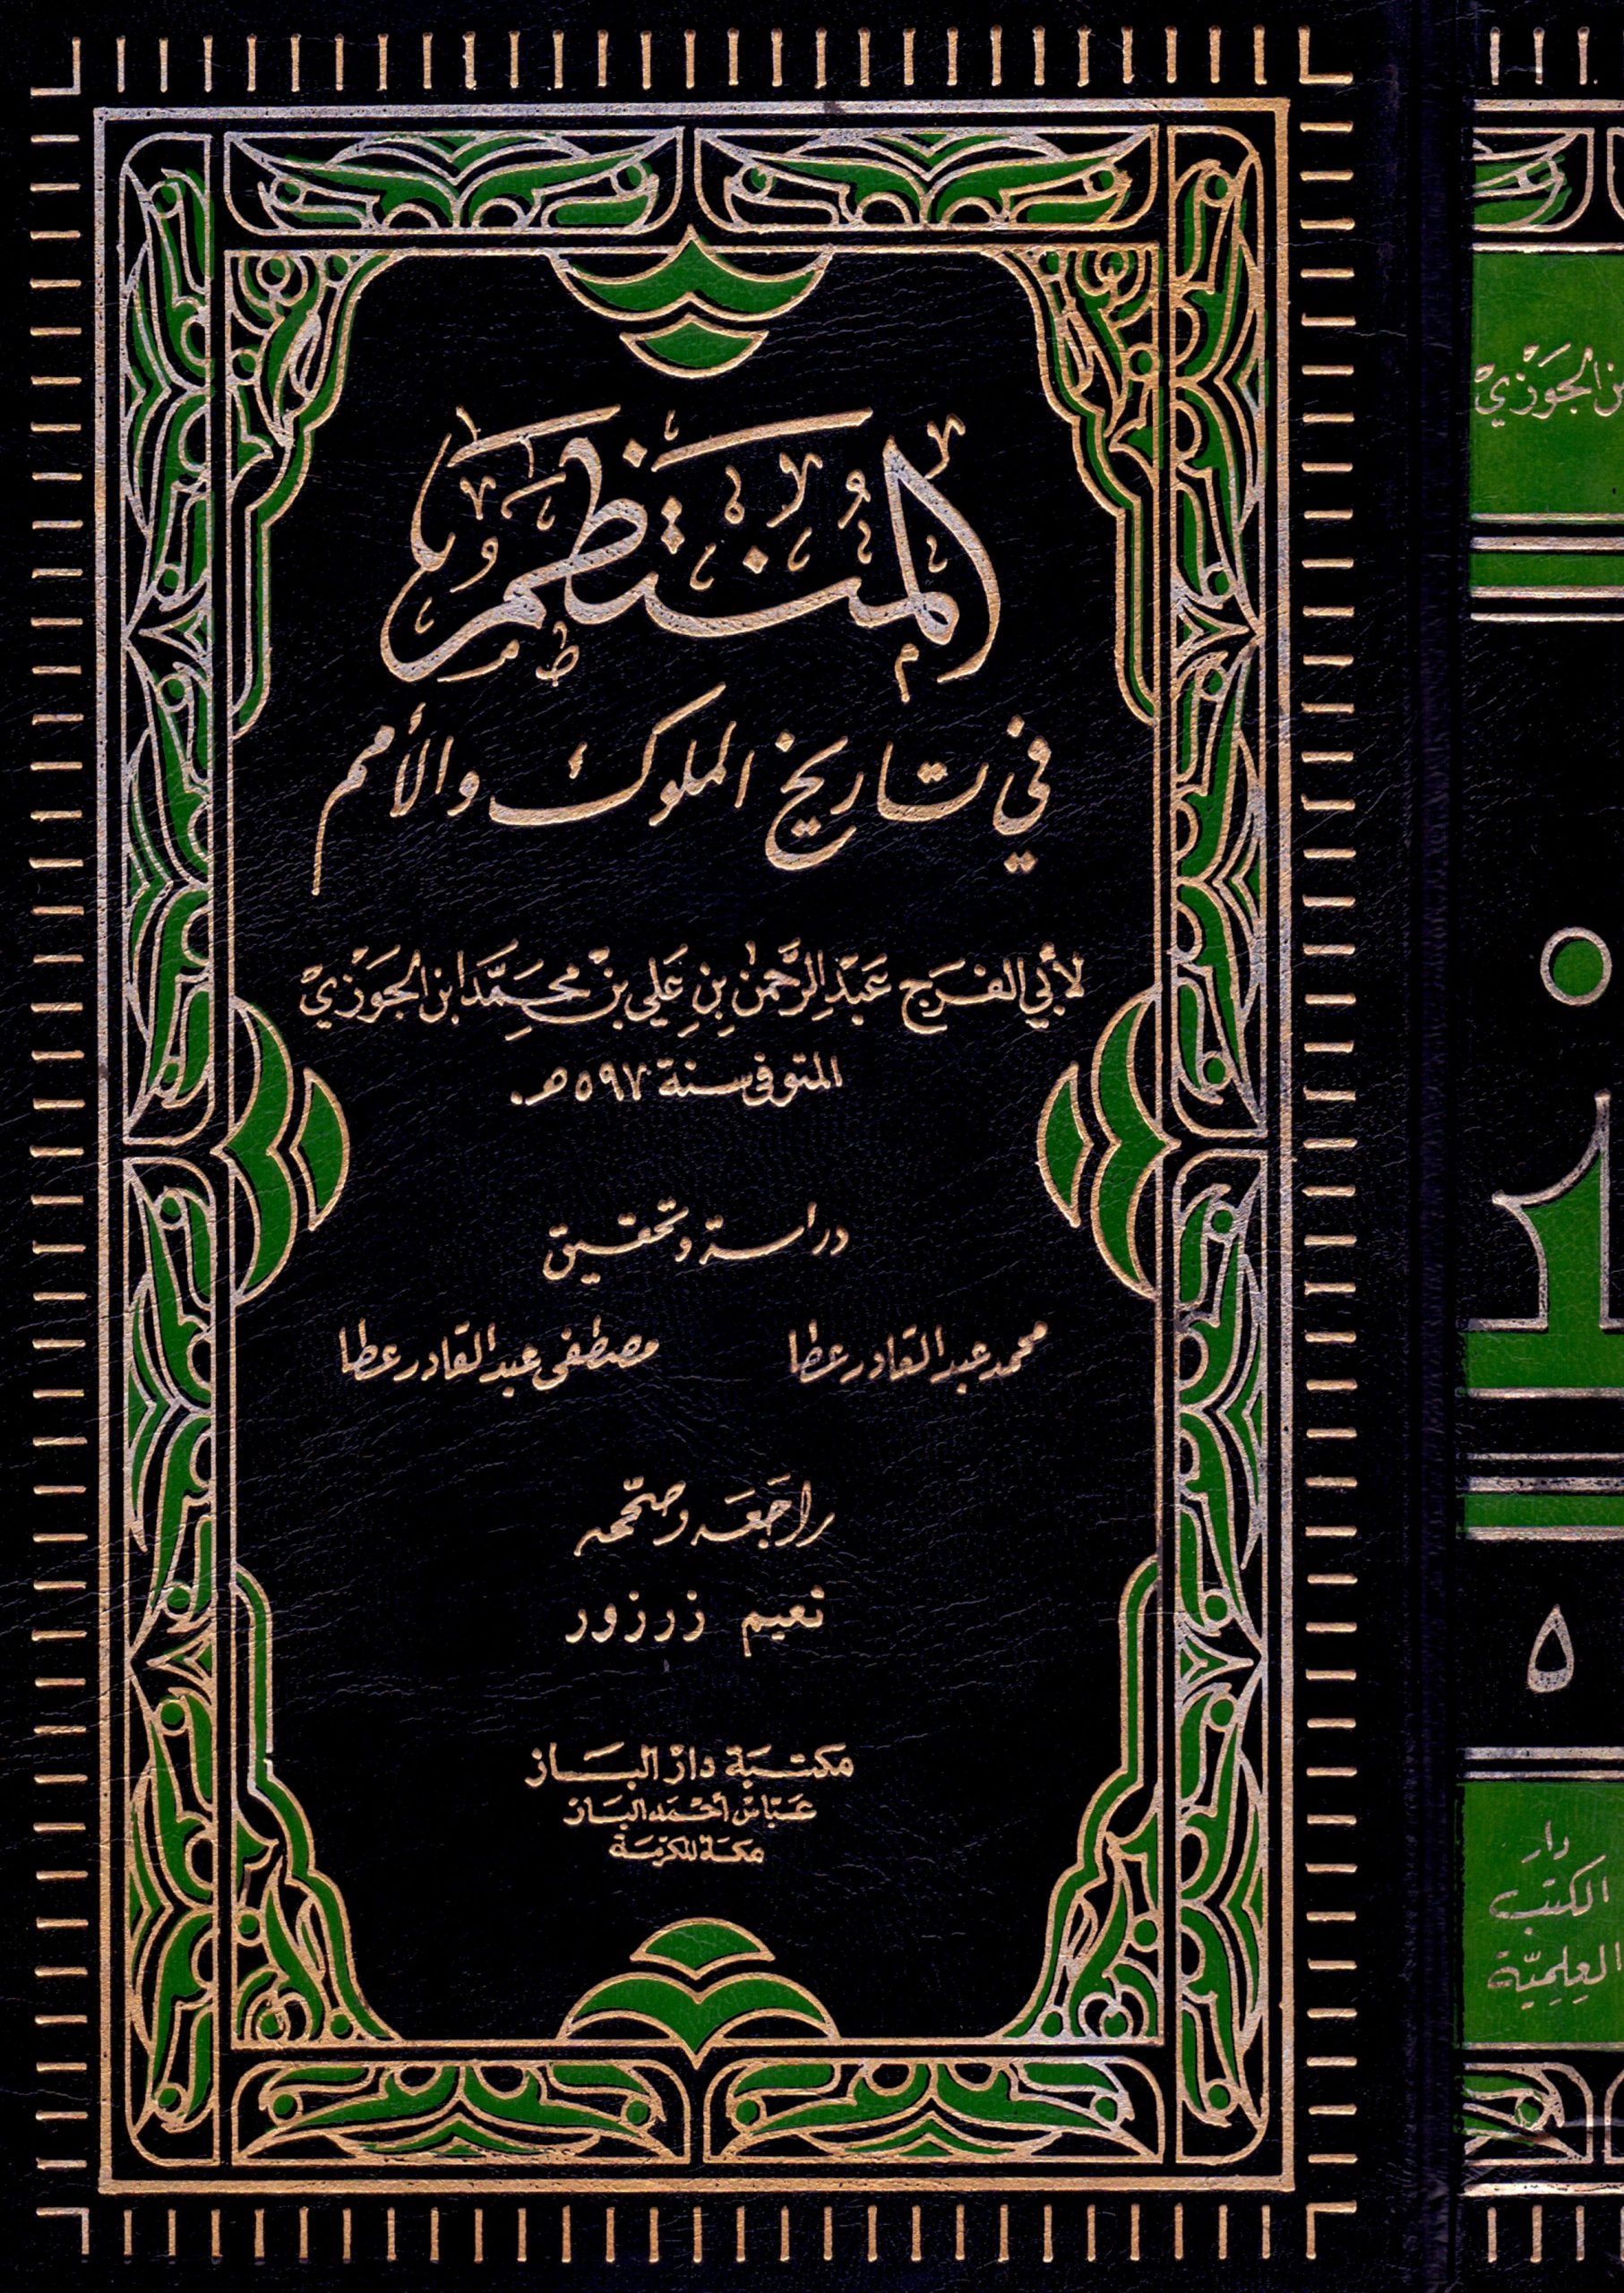 المُنتَظَم
في تاريخ الملوك والأمم
لأبي الفرج عَبْد الرَّحمٰن بنِ عَلي بنْ محَمَّد ابن الجَوْزيْ
المتوفى سنة ٥٩٧ هـ.
دراسة وتحقيق
محمد عبد القادر عطا
مصطفى عبد القادر عطا
راجَعَه وصحّحه
نعيم زرزور
مكتبة دار الباز
عَبّاس أحْمَد الباز
مكة المكرمة
ن الجَوْزيْ
٥
دار
الكتب
العِلميّة